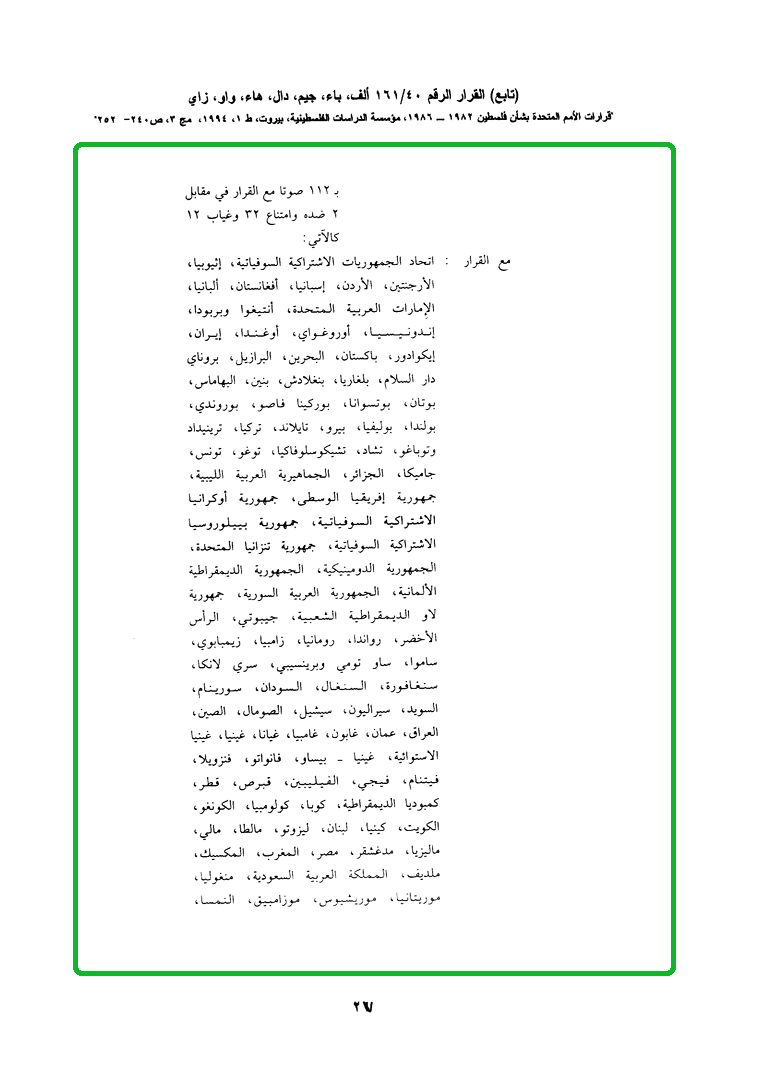 (تابع) القرار الرقم ١٦١/٤٠ ألف، باء، جيم، دال، هاء، واو، زاي
"قرارات الأمم المتحدة بشأن فلسطين ١٩٨٢ ــ ١٩٨٦، مؤسسة الدراسات الفلسطينية، بيروت، ط ١، ١٩٩٤، مج ٣، ص٢٤٠- ٢٥٢"
بـ ١١٢ صوتا مع القرار في مقابل
٢ ضده وامتناع ٣٢ وغياب ١٢
كالآتي:
مع القرار : اتحاد الجمهوريات الاشتراكية السوفياتية، إثيوبيا،
الأرجنتين، الأردن، إسبانيا، أفغانستان، ألبانيا،
الإمارات العربية المتحدة، أنتيغوا وبربودا،
إندونيسيا، أوروغواي، أوغندا، إيران،
إيكوادور، باكستان، البحرين، البرازيل، بروناي
دار السلام، بلغاريا، بنغلادش، بنين، البهاماس،
بوتان، بوتسوانا، بوركينا فاصو، بوروندي،
بولندا، بوليفيا، بيرو، تايلاند، تركيا، ترينيداد
وتوباغو، تشاد، تشيكوسلوفاكيا، توغو، تونس،
جاميكا، الجزائر، الجماهيرية العربية الليبية،
جمهورية إفريقيا الوسطى، جمهورية أوكرانيا
الاشتراكية السوفياتية، جمهورية بييلوروسيا
الاشتراكية السوفياتية، جمهورية تنزانيا المتحدة،
الجمهورية الدومينيكية، الجمهورية الديمقراطية
الألمانية، الجمهورية العربية السورية، جمهورية
لاو الديمقراطية الشعبية، جيبوتي، الرأس
الأخضر، رواندا، رومانيا، زامبيا، زيمبابوي،
ساموا، ساو تومي وبرينسيبي، سري لانكا،
سنغافورة، السنغال، السودان، سورينام،
السويد، سيراليون، سيشيل، الصومال، الصين،
العراق، عمان، غابون، غامبيا، غيانا، غينيا، غينيا
الاستوائية، غينيا ـ بيساو، فانواتو، فنزويلا،
فيتنام، فيجي، الفيليبين، قبرص، قطر،
كمبوديا الديمقراطية، كوبا، كولومبيا، الكونغو،
الكويت، كينيا، لبنان، ليزوتو، مالطا، مالي،
ماليزيا، مدغشقر، مصر، المغرب، المكسيك،
ملديف، المملكة العربية السعودية، منغوليا،
موريتانيا، موريشيوس، موزامبيق، النمسا،
٢٦٧